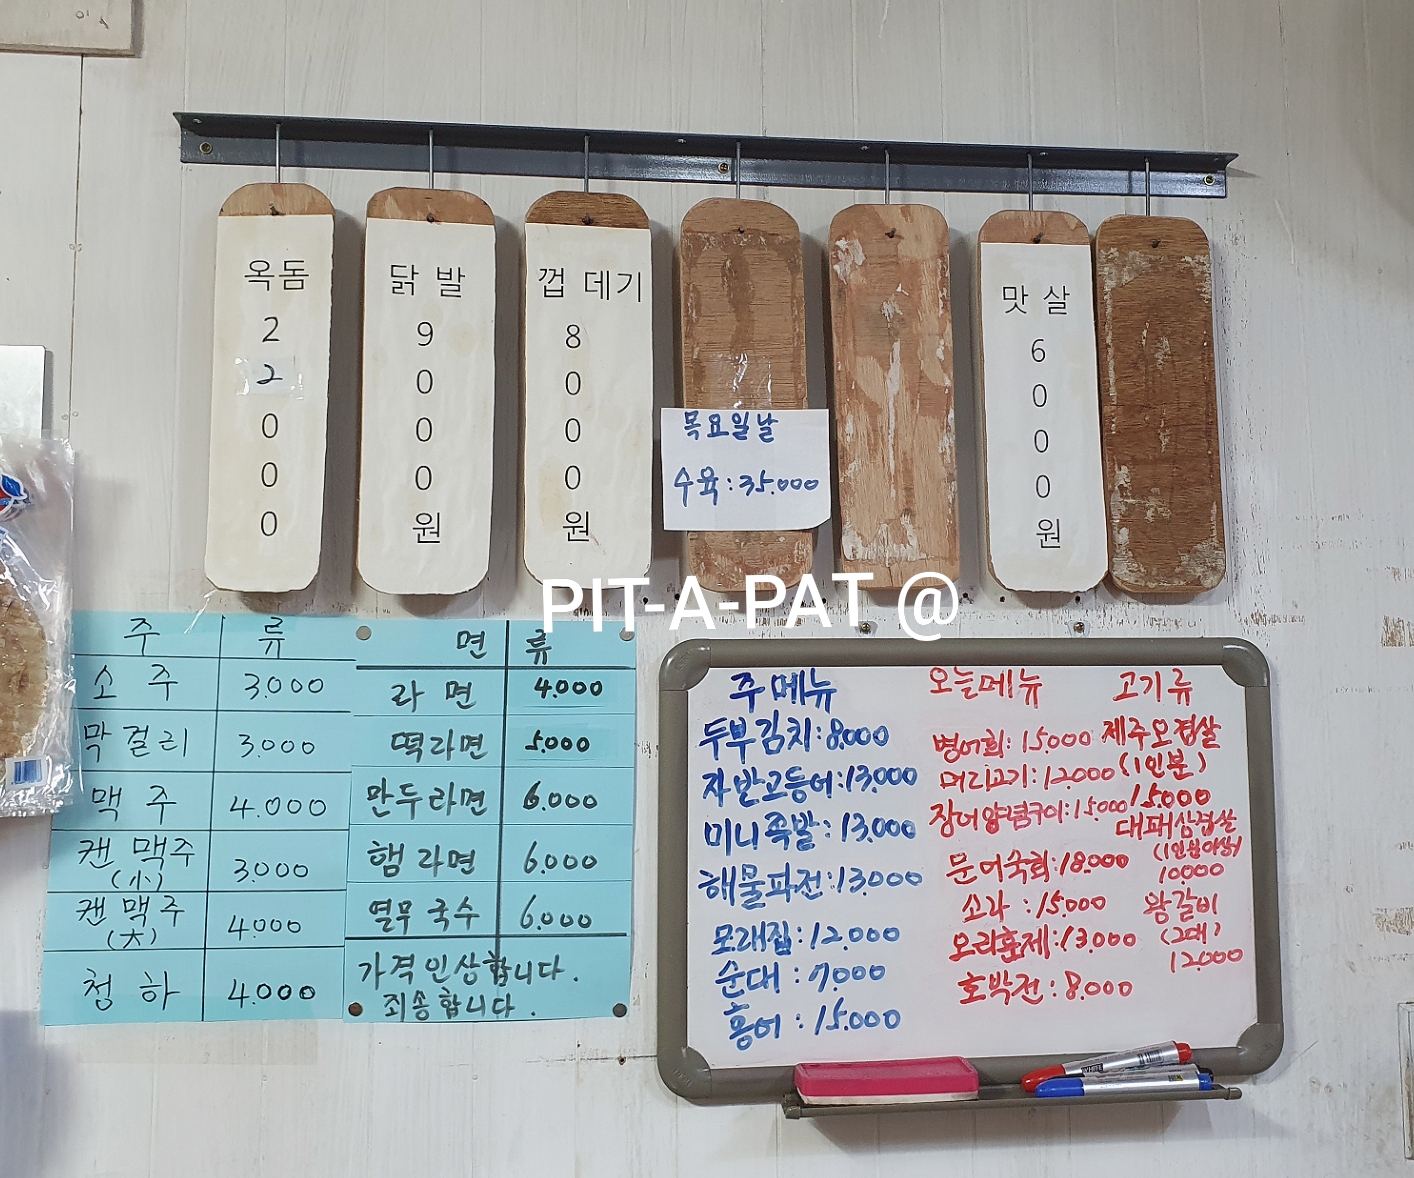 옥돔
2
2
0
0
0
닭 발
9
0
0
0
원
껍 데기
8
0
0
0
원
목요일날
수육:35.000
맛 살
6
0
0
0
원
PIT-A-PAT @
주 류
소 주 3.000
막걸리 3.000
맥 주 4.000
캔 맥주 3.000
(小)
캔 맥주 4.000
(大)
청 하 4.000
면 류
라 면 4.000
떡라면 5.000
만두라면 6.000
햄 라면 6.000
열무 국수 6.000
가격인상합니다.
죄송합니다.
주메뉴
두부김치:8.000
자반고등어:13.000
미니족발:13.000
해물파전:13.000
모래집:12.000
순대:7.000
홍어:15.000
오늘메뉴
병어회:15.000
머리고기:12.000
장어양념구이:15.000
문어숙회:18.000
소라:15.000
오리훈제:13.000
호박전:8.000
고기류
제주오겹살
(1인분)
15.000
대패삼겹살
(1인분이상)
10.000
왕갈비
(2대)
12.000